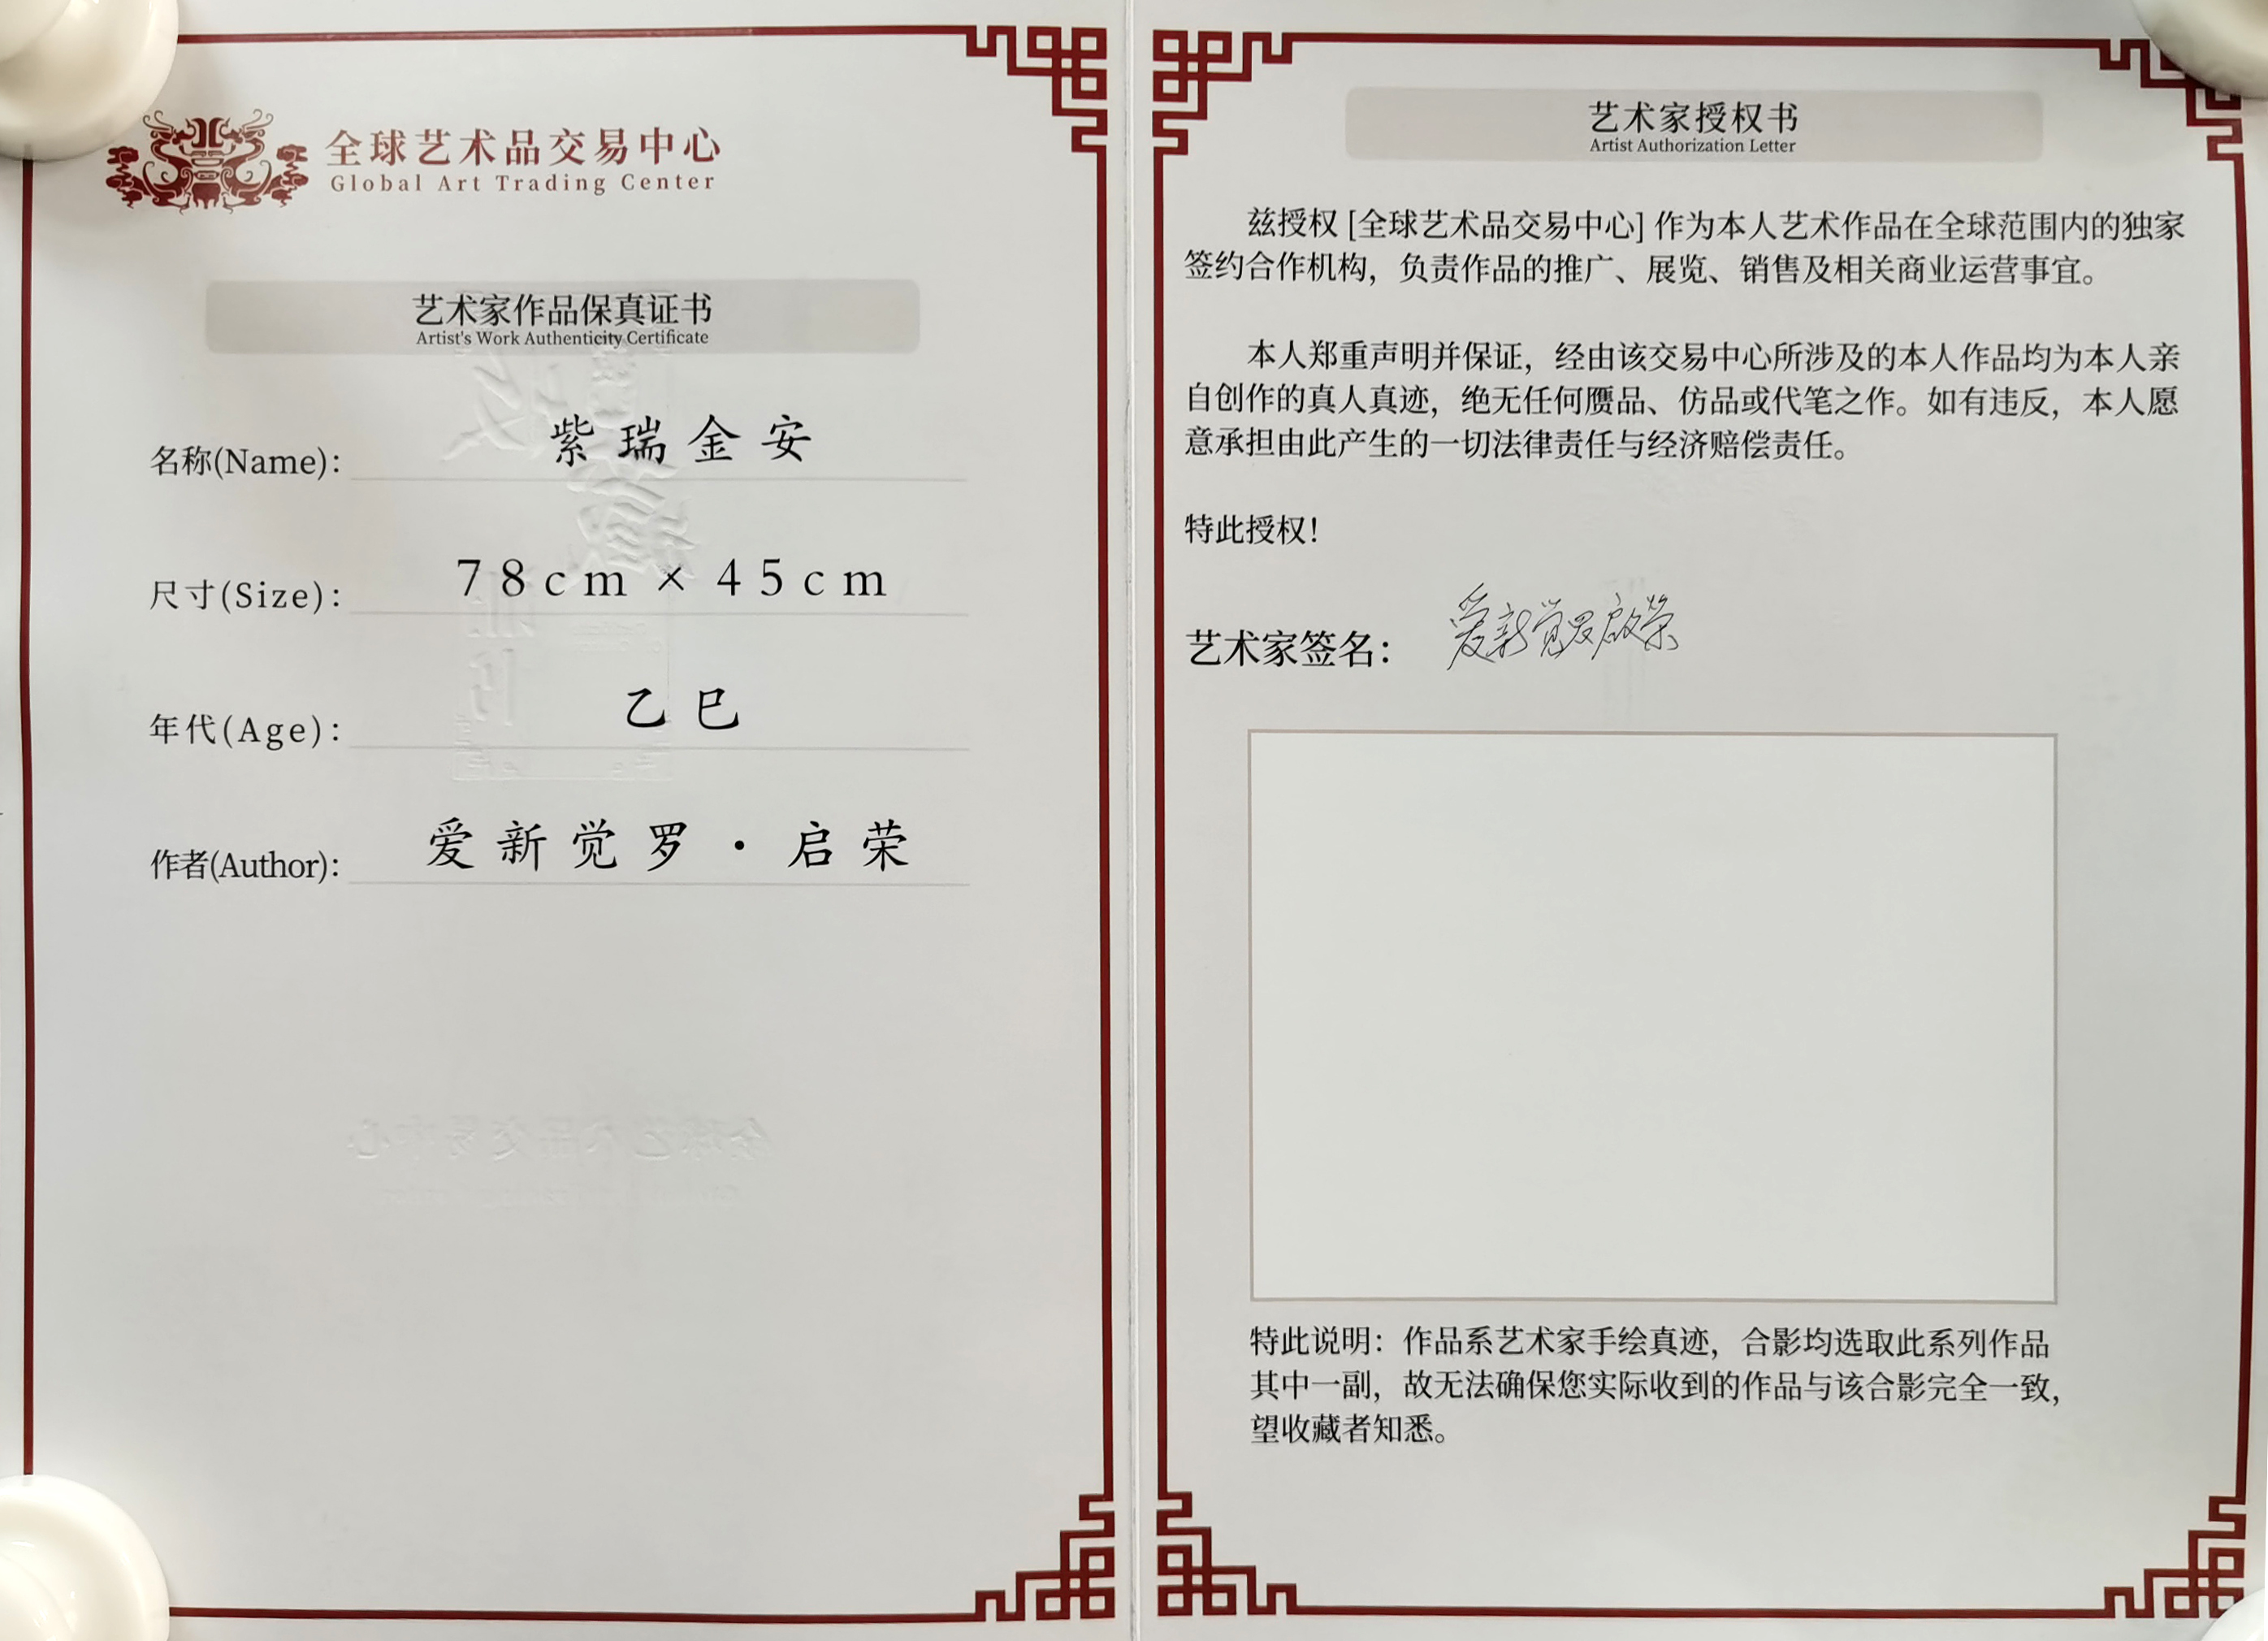 全球艺术品交易中心
Global Art Trading Center
艺术家作品保真证书
Artist's Work Authenticity Certificate
名称(Name): 紫瑞金安
尺寸(Size): 78cm × 45cm
年代(Age): 乙巳
作者(Author): 爱新觉罗·启荣
艺术家授权书
Artist Authorization Letter
兹授权 [全球艺术品交易中心] 作为本人艺术作品在全球范围内的独家
签约合作机构，负责作品的推广、展览、销售及相关商业运营事宜。
本人郑重声明并保证，经由该交易中心所涉及的本人作品均为本人亲
自创作的真人真迹，绝无任何赝品、仿品或代笔之作。如有违反，本人愿
意承担由此产生的一切法律责任与经济赔偿责任。
特此授权！
艺术家签名： 爱新觉罗启荣
特此说明：作品系艺术家手绘真迹，合影均选取此系列作品
其中一副，故无法确保您实际收到的作品与该合影完全一致，
望收藏者知悉。